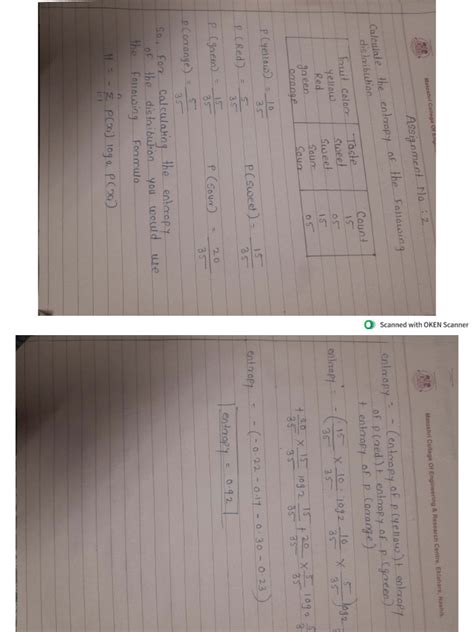 Matoshri College Of Eng
Assignment No : 2
Calculate the entropy of the following
distribution.
fruit Colorr Taste Count
yellow sweet 15
Red sweet 05
green sour 15
orrange sour 05
P(yellow) = 10/35 P(sweet) = 15/35
P(Red) = 5/35
P(green) = 15/35 P(sour) = 20/35
P(orrange) = 5/35
So, for calculating the entropy
of the distribution you would use
the following formula
H = - Σ P(xi) log2 P(xi)
Scanned with OKEN Scanner
Matoshri College Of Engineering & Research Centre, Eklahare, Nashik.
entropy = - (entropy of p(yellow) + entropy
of p(red) + entropy of p(green)
+ entropy of p(orrange)
entropy = - (15/35 × 10/35 log2 10/35 × 5/35 log2
+ 20/35 × 15/35 log2 15/35 + 20/35 × 5/35 log2 5/35
entropy = - (-0.22 - 0.17 - 0.30 - 0.23)
entropy = 0.92